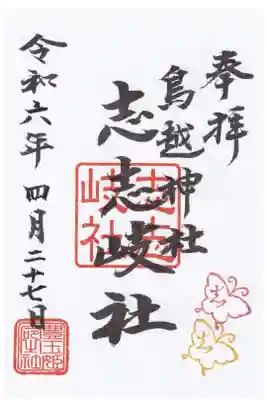 奉拝
鳥越神社
志志岐社
令和六年 四月二十七日
志志岐社